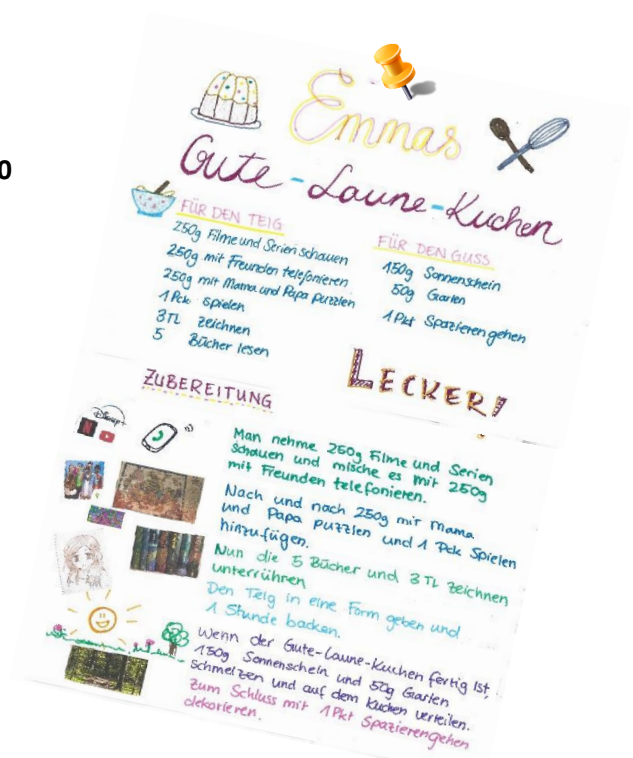 0
Emmas
Gute-Laune-Kuchen
FÜR DEN TEIG
250g Filme und Serien schauen
250g mit Freunden telefonieren
250g mit Mama und Papa puzzlen
1 Pck spielen
3TL zeichnen
5 Bücher lesen
FÜR DEN GUSS
150g Sonnenschein
50g Garten
1 Pkt Spazieren gehen
LECKER!
ZUBEREITUNG
Disney+
N
Man nehme 250g Filme und Serien
schauen und mische es mit 250g
mit Freunden telefonieren.
Nach und nach 250g mit Mama
und Papa puzzlen und 1 Pck Spielen
hinzufügen.
Nun die 5 Bücher und 3 TL zeichnen
unterrühren
Den Teig in eine Form geben und
1 Stunde backen.
Wenn der Gute-Laune-Kuchen fertig ist,
150g Sonnenschein und 50g Garten
schmelzen und auf dem Kuchen verteilen.
Zum Schluss mit 1 Pkt Spazierengehen
dekorieren.